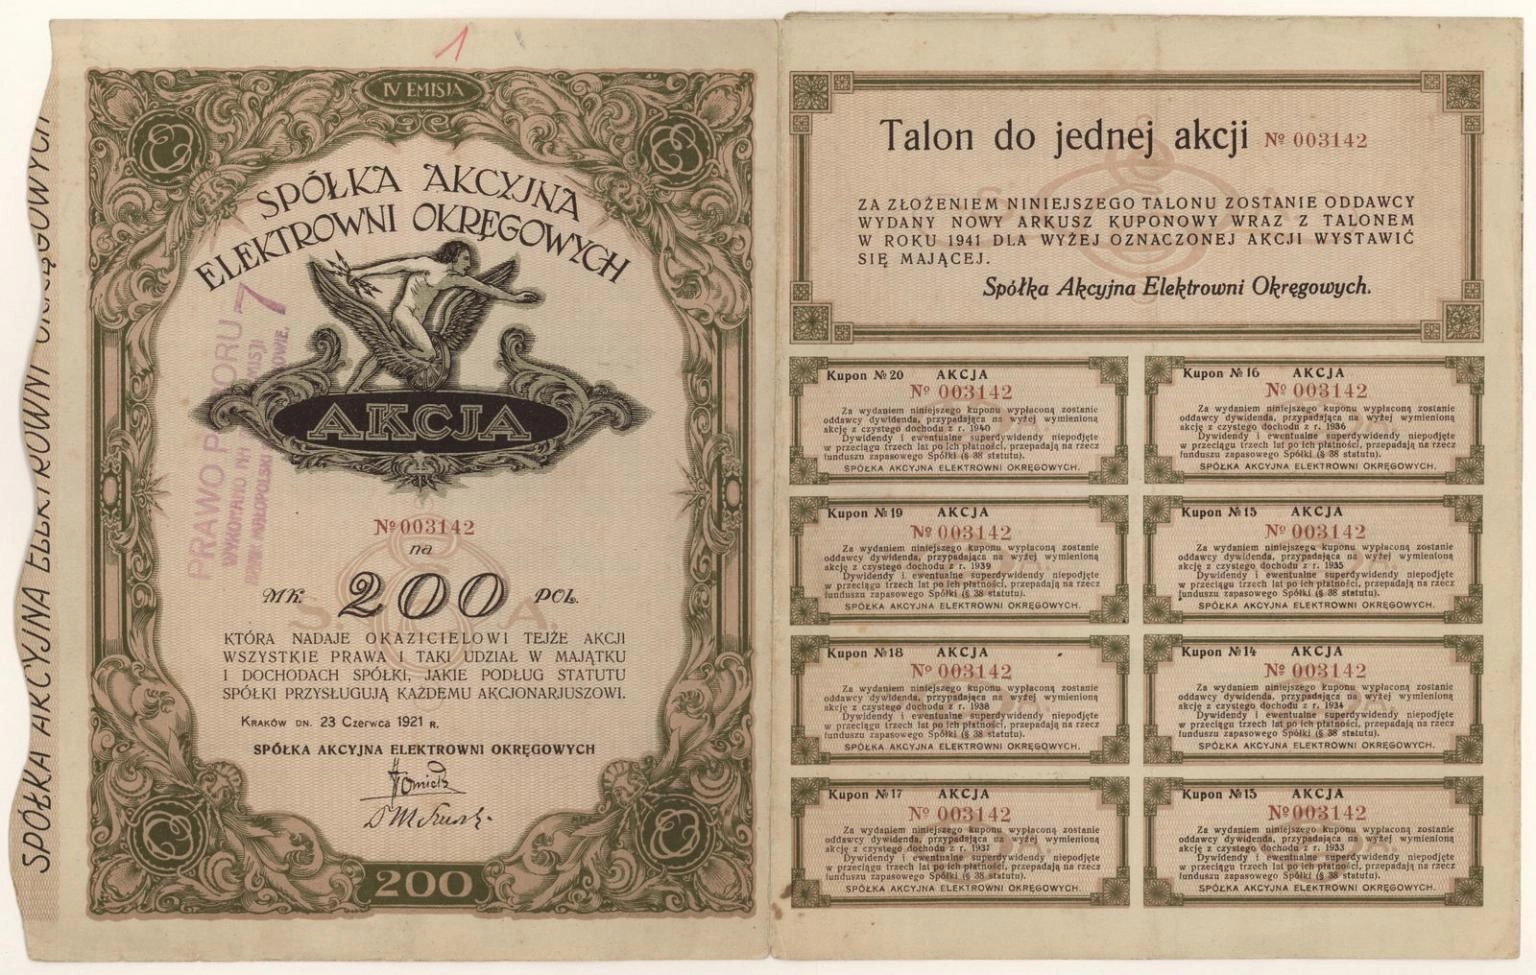 1
IV EMISJA
SPÓŁKA AKCYJNA
ELEKTROWNI OKRĘGOWYCH
AKCJA
№ 003142
na
MK. 200 POL.
KTÓRA NADAJE OKAZICIELOWI TEJŻE AKCJI
WSZYSTKIE PRAWA I TAKI UDZIAŁ W MAJĄTKU
I DOCHODACH SPÓŁKI, JAKIE PODŁUG STATUTU
SPÓŁKI PRZYSŁUGUJĄ KAŻDEMU AKCJONARJUSZOWI.
KRAKÓW DN. 23 Czerwca 1921 R.
SPÓŁKA AKCYJNA ELEKTROWNI OKRĘGOWYCH
200
SPÓŁKA AKCYJNA ELEKTROWNI OKRĘGOWYCH
PRAWO POBORU 7
WYKONANO
MAŁOPOLSKI
Talon do jednej akcji № 003142
ZA ZŁOŻENIEM NINIEJSZEGO TALONU ZOSTANIE ODDAWCY
WYDANY NOWY ARKUSZ KUPONOWY WRAZ Z TALONEM
W ROKU 1941 DLA WYŻEJ OZNACZONEJ AKCJI WYSTAWIĆ
SIĘ MAJĄCEJ.
Spółka Akcyjna Elektrowni Okręgowych.
Kupon № 20 AKCJA
№ 003142
Za wydaniem niniejszego kuponu wypłaconą zostanie
oddawcy dywidenda, przypadająca na wyżej wymienioną
akcję z czystego dochodu z r. 1940
Dywidendy i ewentualne superdywidendy niepodjęte
w przeciągu trzech lat po ich płatności, przepadają na rzecz
funduszu zapasowego Spółki (§ 38 statutu).
SPÓŁKA AKCYJNA ELEKTROWNI OKRĘGOWYCH.
Kupon № 16 AKCJA
№ 003142
Za wydaniem niniejszego kuponu wypłaconą zostanie
oddawcy dywidenda, przypadająca na wyżej wymienioną
akcję z czystego dochodu z r. 1936
Dywidendy i ewentualne superdywidendy niepodjęte
w przeciągu trzech lat po ich płatności, przepadają na rzecz
funduszu zapasowego Spółki (§ 38 statutu).
SPÓŁKA AKCYJNA ELEKTROWNI OKRĘGOWYCH.
Kupon № 19 AKCJA
№ 003142
Za wydaniem niniejszego kuponu wypłaconą zostanie
oddawcy dywidenda, przypadająca na wyżej wymienioną
akcję z czystego dochodu z r. 1939
Dywidendy i ewentualne superdywidendy niepodjęte
w przeciągu trzech lat po ich płatności, przepadają na rzecz
funduszu zapasowego Spółki (§ 38 statutu).
SPÓŁKA AKCYJNA ELEKTROWNI OKRĘGOWYCH.
Kupon № 15 AKCJA
№ 003142
Za wydaniem niniejszego kuponu wypłaconą zostanie
oddawcy dywidenda, przypadająca na wyżej wymienioną
akcję z czystego dochodu z r. 1935
Dywidendy i ewentualne superdywidendy niepodjęte
w przeciągu trzech lat po ich płatności, przepadają na rzecz
funduszu zapasowego Spółki (§ 38 statutu).
SPÓŁKA AKCYJNA ELEKTROWNI OKRĘGOWYCH.
Kupon № 18 AKCJA
№ 003142
Za wydaniem niniejszego kuponu wypłaconą zostanie
oddawcy dywidenda, przypadająca na wyżej wymienioną
akcję z czystego dochodu z r. 1938
Dywidendy i ewentualne superdywidendy niepodjęte
w przeciągu trzech lat po ich płatności, przepadają na rzecz
funduszu zapasowego Spółki (§ 38 statutu).
SPÓŁKA AKCYJNA ELEKTROWNI OKRĘGOWYCH.
Kupon № 14 AKCJA
№ 003142
Za wydaniem niniejszego kuponu wypłaconą zostanie
oddawcy dywidenda, przypadająca na wyżej wymienioną
akcję z czystego dochodu z r. 1934
Dywidendy i ewentualne superdywidendy niepodjęte
w przeciągu trzech lat po ich płatności, przepadają na rzecz
funduszu zapasowego Spółki (§ 38 statutu).
SPÓŁKA AKCYJNA ELEKTROWNI OKRĘGOWYCH.
Kupon № 17 AKCJA
№ 003142
Za wydaniem niniejszego kuponu wypłaconą zostanie
oddawcy dywidenda, przypadająca na wyżej wymienioną
akcję z czystego dochodu z r. 1937
Dywidendy i ewentualne superdywidendy niepodjęte
w przeciągu trzech lat po ich płatności, przepadają na rzecz
funduszu zapasowego Spółki (§ 38 statutu).
SPÓŁKA AKCYJNA ELEKTROWNI OKRĘGOWYCH.
Kupon № 13 AKCJA
№ 003142
Za wydaniem niniejszego kuponu wypłaconą zostanie
oddawcy dywidenda, przypadająca na wyżej wymienioną
akcję z czystego dochodu z r. 1933
Dywidendy i ewentualne superdywidendy niepodjęte
w przeciągu trzech lat po ich płatności, przepadają na rzecz
funduszu zapasowego Spółki (§ 38 statutu).
SPÓŁKA AKCYJNA ELEKTROWNI OKRĘGOWYCH.